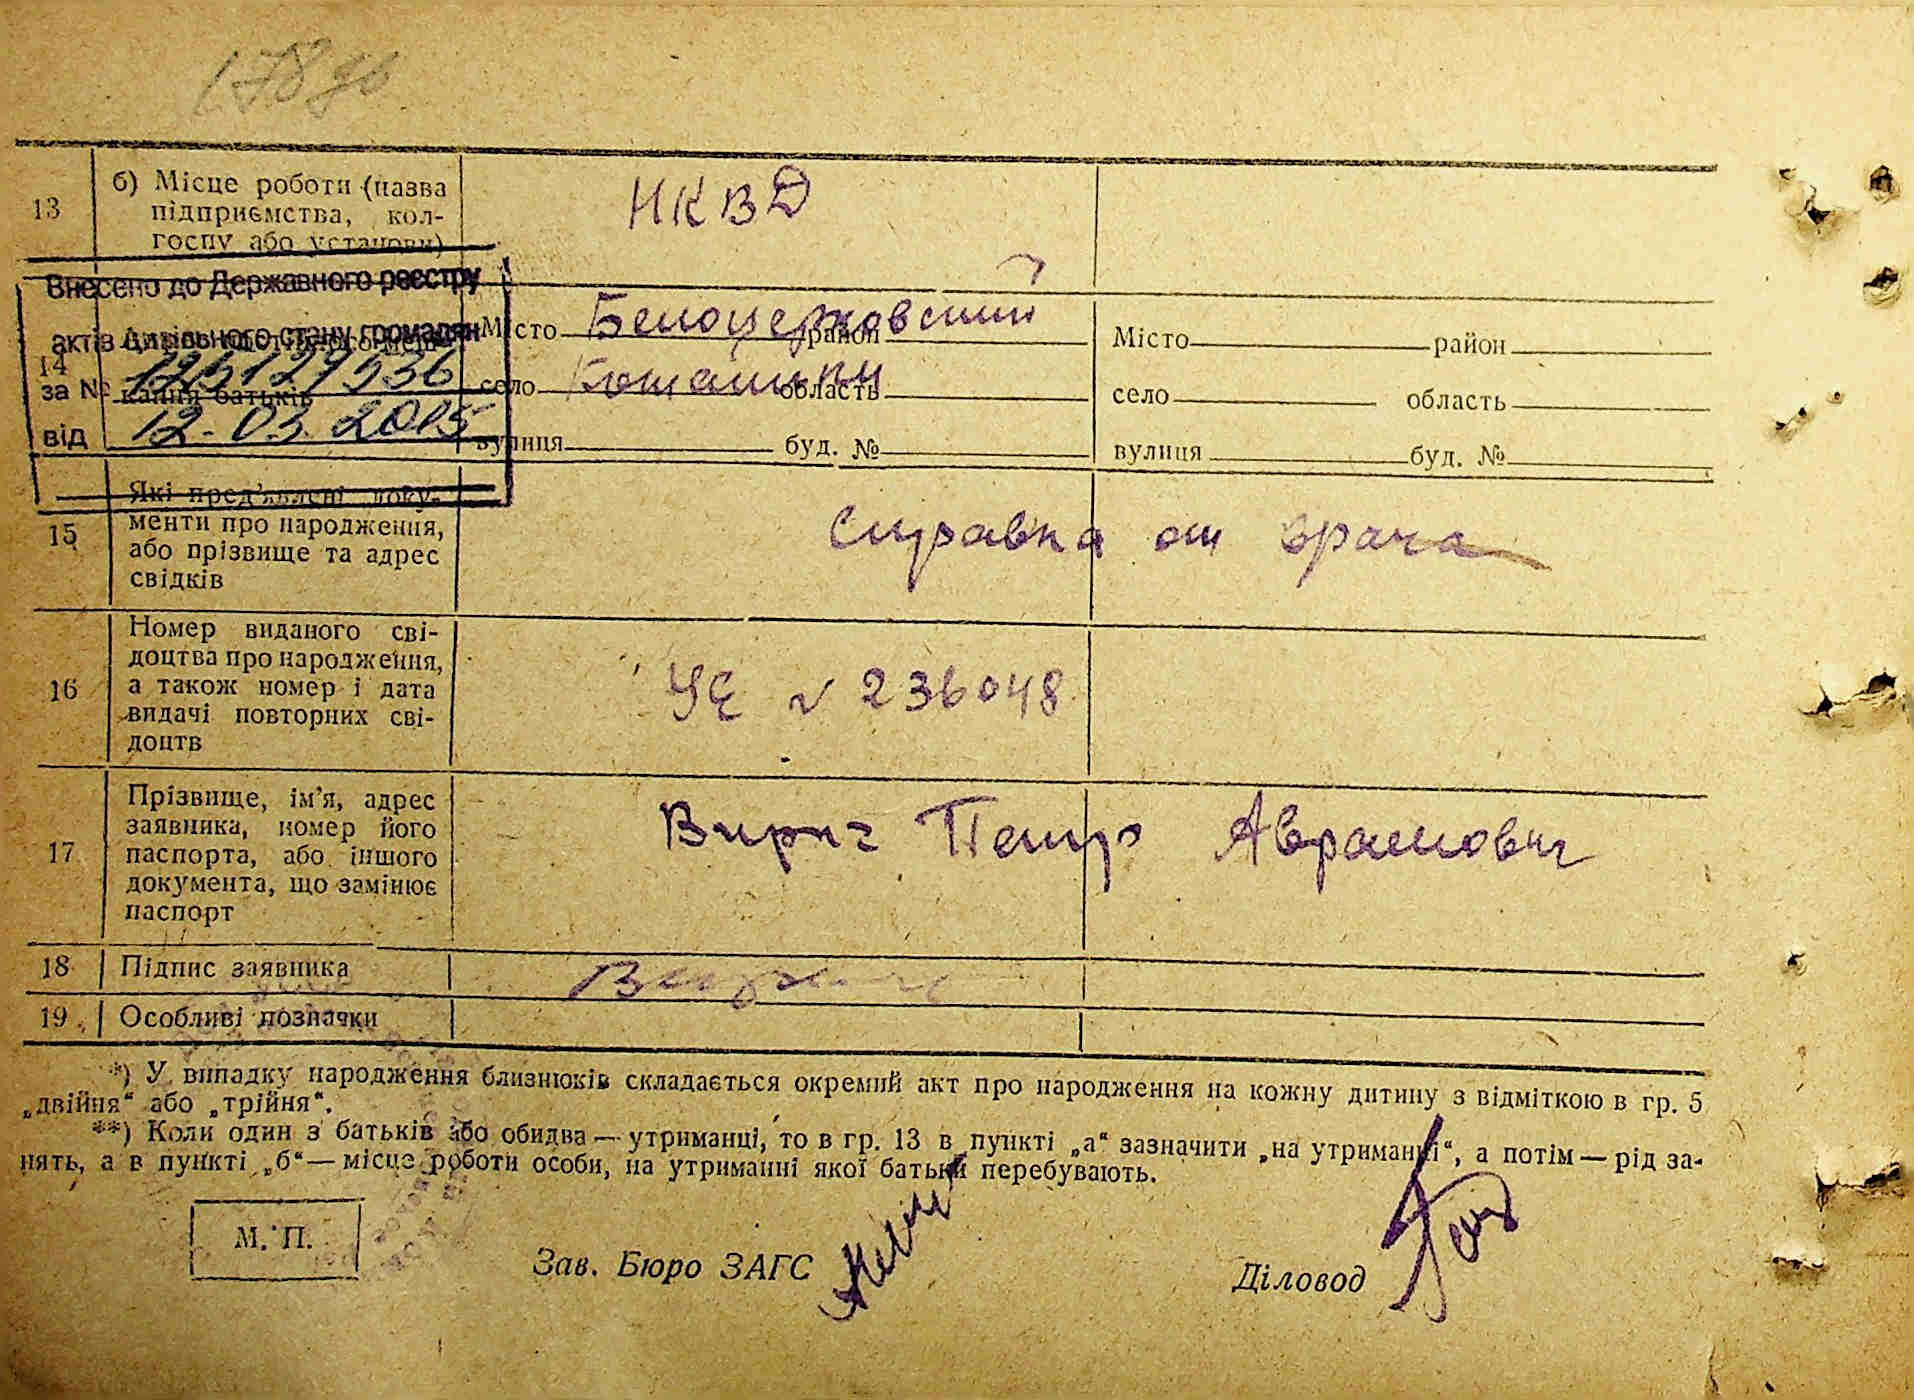 178
13 б) Місце роботи (назва
підприємства, кол-
госпу або установи)
НКВД
Внесено до Державного реєстру
актів цивільного стану громадян
за №
від 12.03.2015
14
кання батьків
Місто Белоцерковский район
село область
вулиця буд. №
Місто район
село область
вулиця буд. №
15 Які пред'явлені доку-
менти про народження,
або прізвище та адрес
свідків
Справка от врача
16 Номер виданого сві-
доцтва про народження,
а також номер і дата
видачі повторних сві-
доцтв
УЄ № 236048
17 Прізвище, ім'я, адрес
заявника, номер його
паспорта, або іншого
документа, що замінює
паспорт
Вирич Петр Аврамович
18 Підпис заявника
19 Особливі позначки
*) У випадку народження близнюків складається окремий акт про народження на кожну дитину з відміткою в гр. 5
„двійня“ або „трійня“.
**) Коли один з батьків або обидва — утриманці, то в гр. 13 в пункті „а“ зазначити „на утриманні“, а потім — рід за-
нять, а в пункті „б“ — місце роботи особи, на утриманні якої батьки перебувають.
М. П.
Зав. Бюро ЗАГС
Діловод